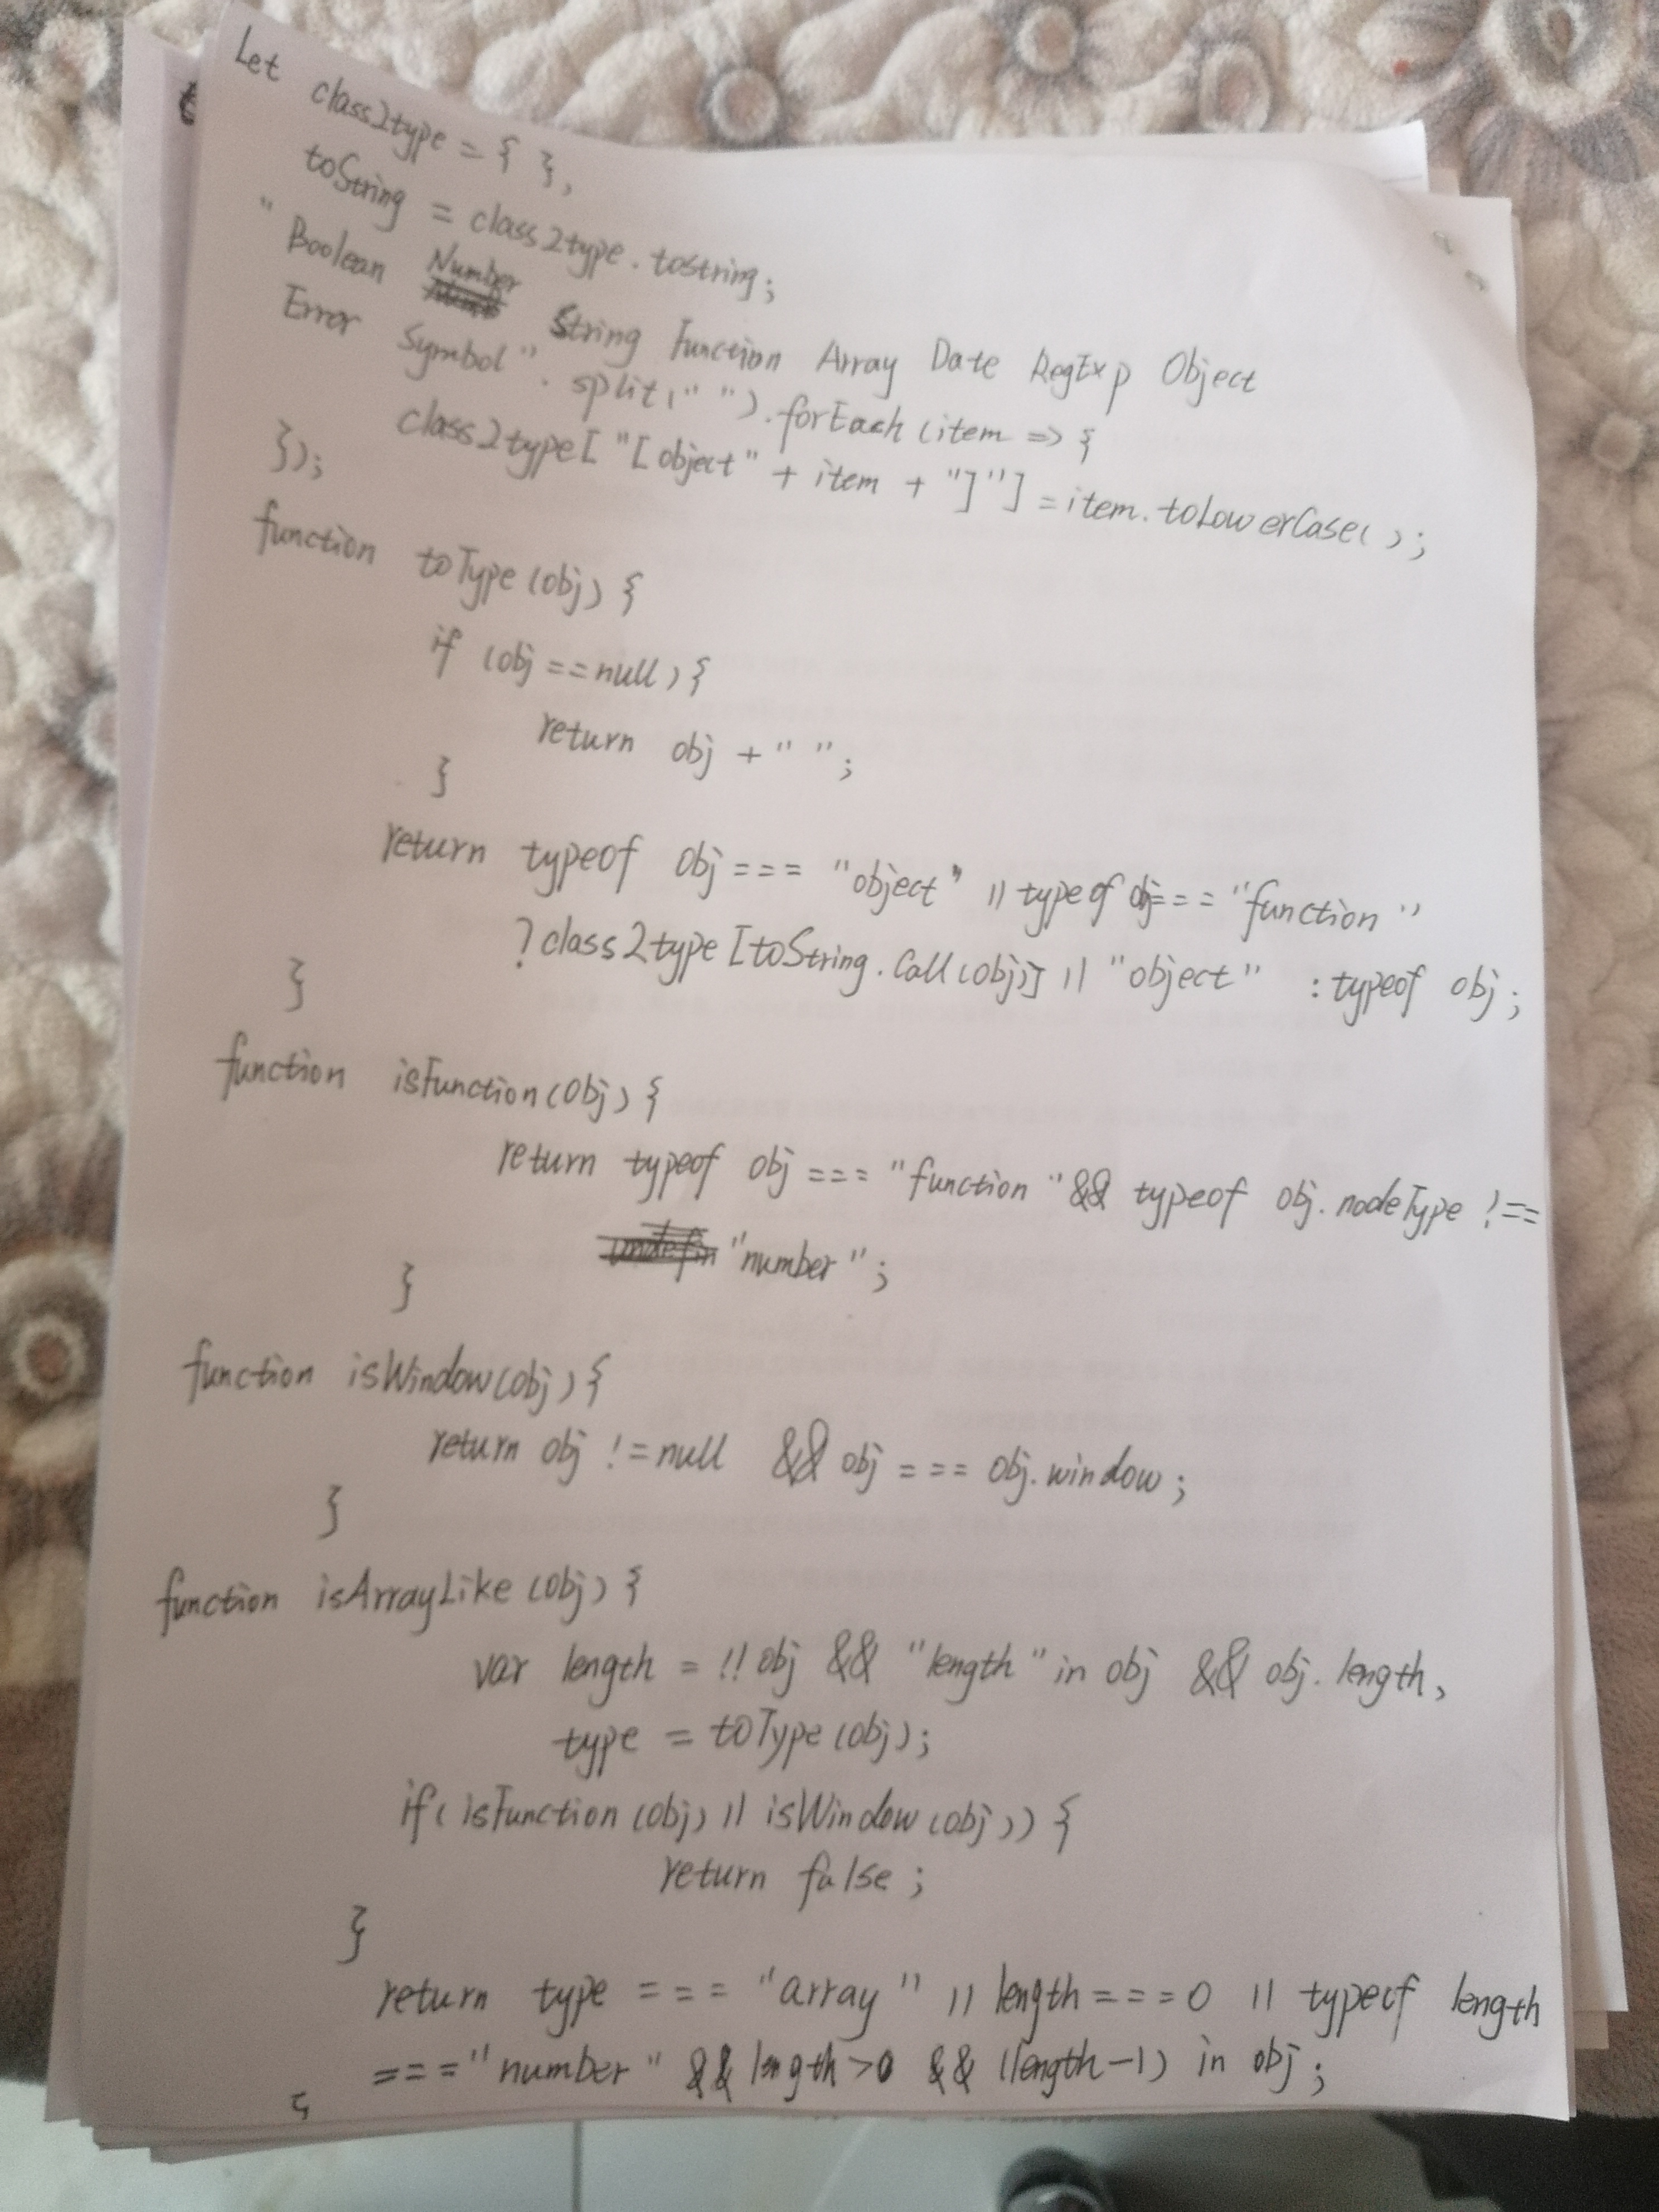 Let class2type = { },
toString = class2type.tostring;
" Boolean Number String Function Array Date RegExp Object
Error Symbol". split(" ").forEach (item => {
class2type["[object" + item + "]"] = item.toLowerCase();
});
function toType(obj) {
if (obj == null) {
return obj + " ";
}
return typeof obj === "object" || typeof obj === "function"
? class2type [toString.Call(obj)] || "object" : typeof obj;
}
function isFunction(obj) {
return typeof obj === "function" && typeof obj.nodeType !==
"number";
}
function isWindow(obj) {
return obj != null && obj === obj.window;
}
function isArrayLike (obj) {
var length = !! obj && "length" in obj && obj.length,
type = toType(obj);
if( isFunction (obj) || isWindow (obj)) {
return false;
}
return type === "array" || length === 0 || typeof length
=== "number" && length > 0 && (length-1) in obj;